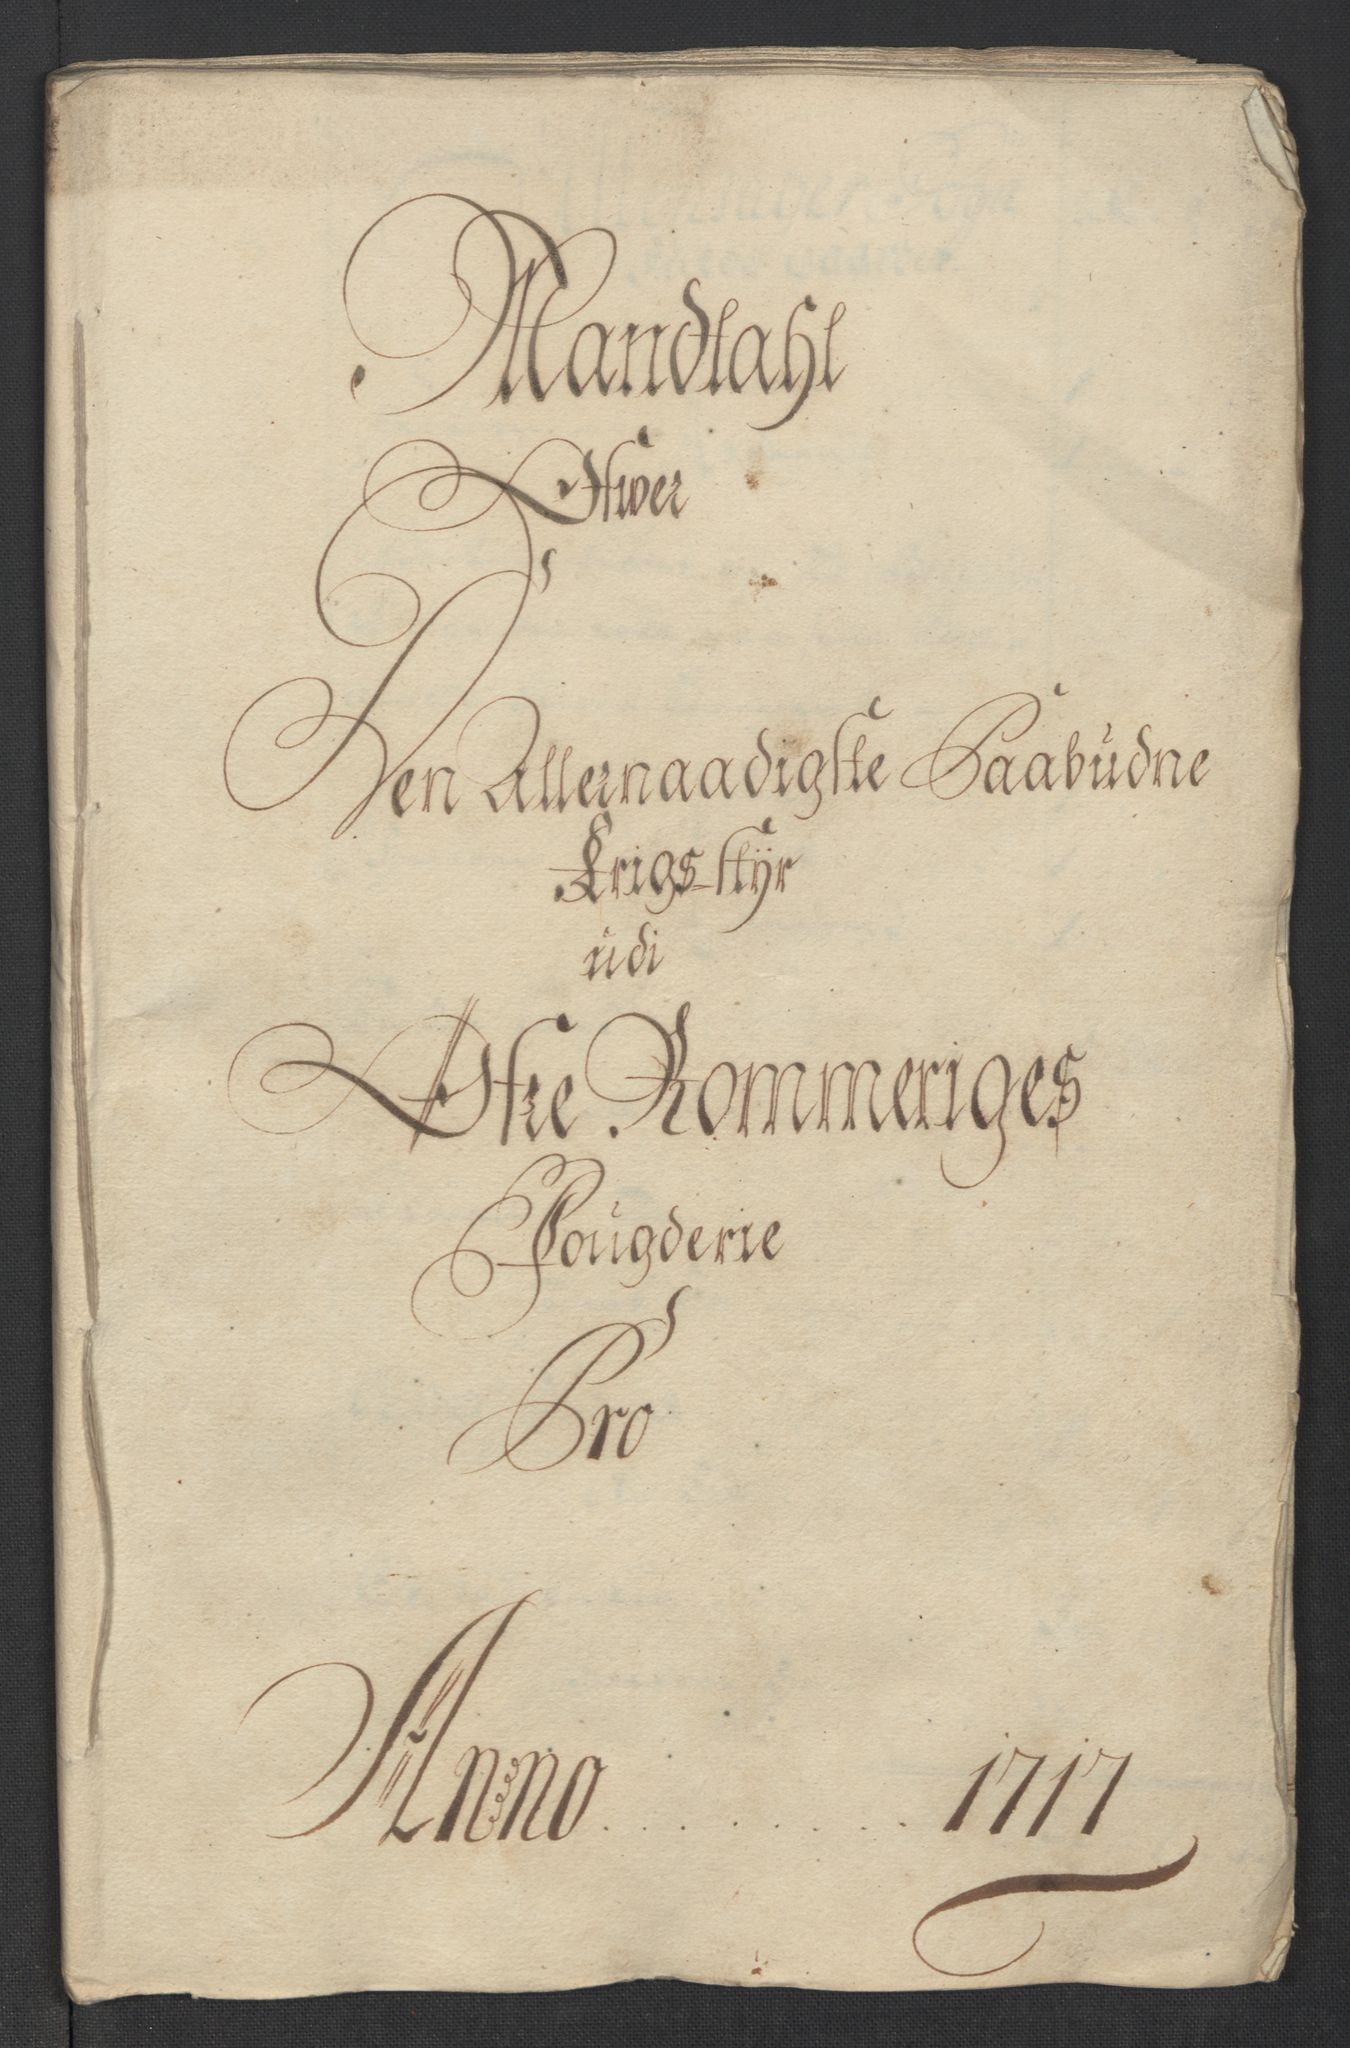 Mandtahl
Ofwer
Den Allernaadigste Paabudne
Krigs-styr
udi
Øfre Rommeriges
Fougderie
Pro
Anno . . . . . . . . 1717